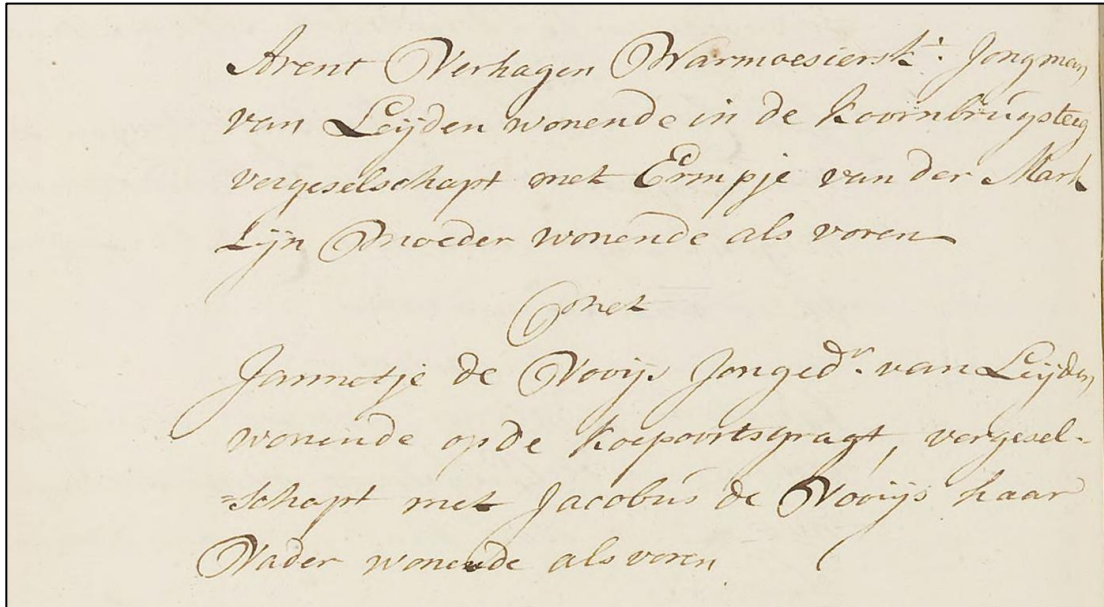 Arent Verhagen Warmoesiersk.t Jongman
van Leijden wonende in de Koornbrugsteeg
vergeselschapt met Ermpje van der Mark
Zijn Moeder wonende als voren
met
Jannetje de Nooijs Jonged.r van Leijden
wonende op de Koepoortsgragt, vergesel-
=schapt met Jacobus de Nooijs haar
Vader wonende als voren